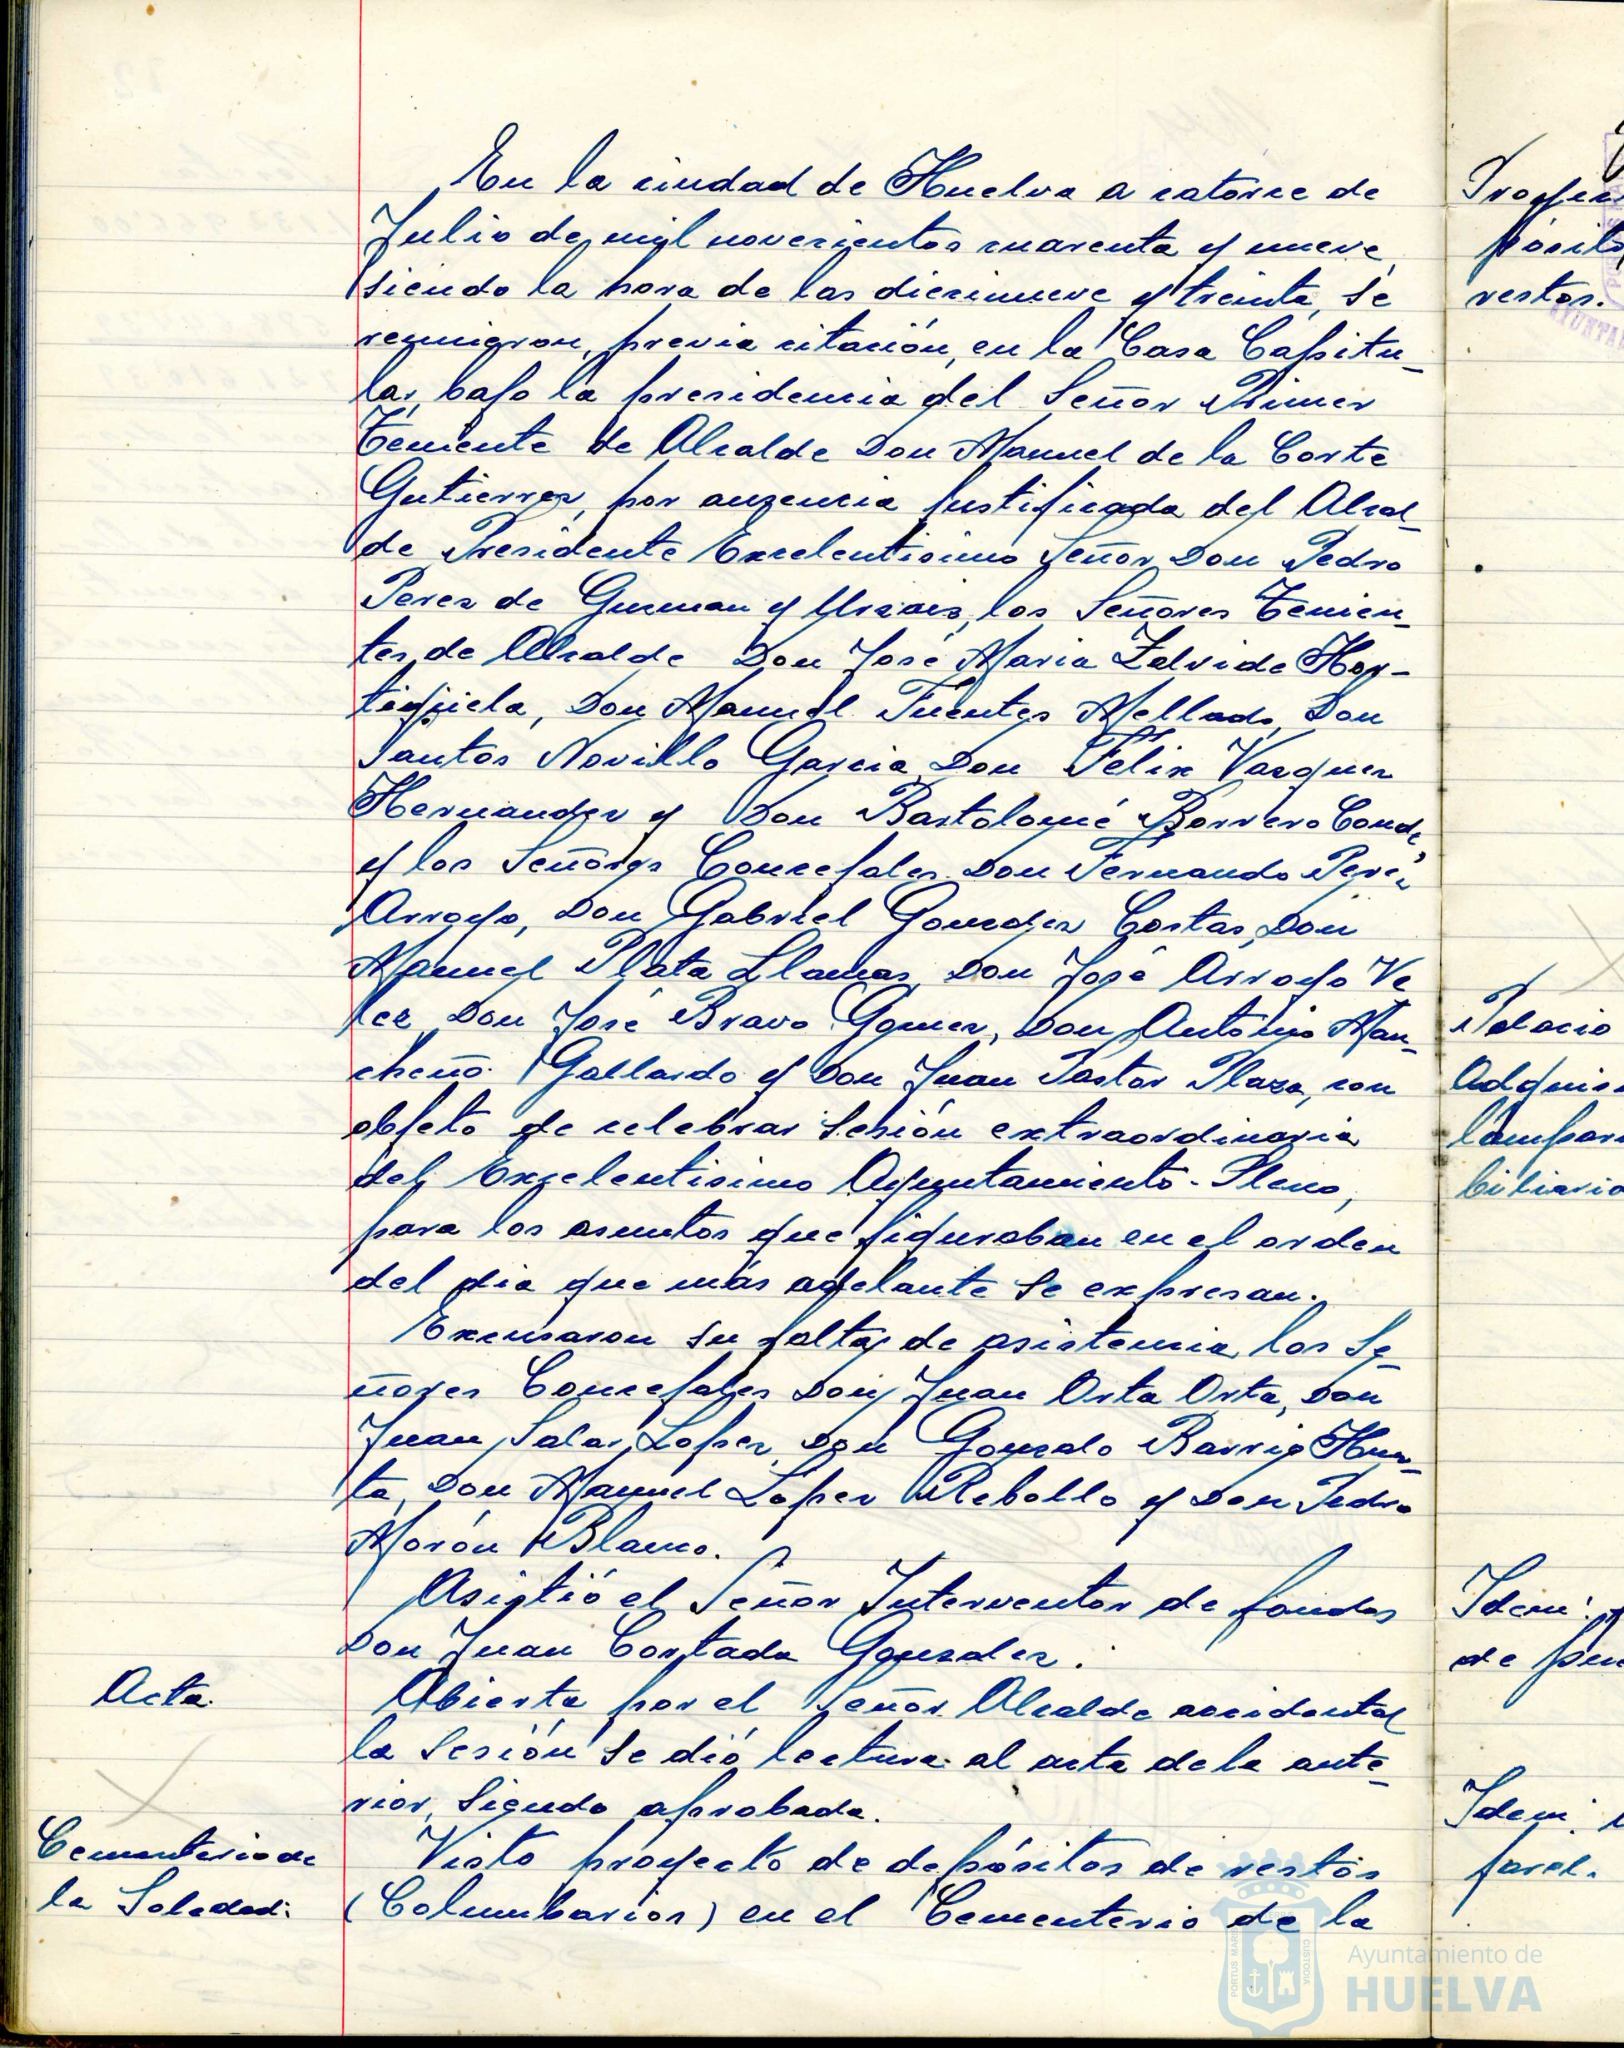 En la ciudad de Huelva a catorce de
Julio de mil novecientos cuarenta y nueve,
siendo la hora de las diecinueve y treinta, se
reunieron, previa citación, en la Casa Capitu-
lar, bajo la presidencia del Señor Primer
Teniente de Alcalde Don Manuel de la Corte
Gutierrez, por ausencia justificada del Alcal-
de Presidente Excelentisimo Señor Don Pedro
Perez de Guzman y Urzaiz, los Señores Tenien-
tes de Alcalde Don José Maria Zalvide Hor-
tigüela, Don Manuel Fuentes Mellado, Don
Santos Novillo Garcia, Don Felix Vazquez
Hernandez y Don Bartolomé Borrero Conde,
y los Señores Concejales Don Fernando Perez
Arroyo, Don Gabriel Gonzalez Costas, Don
Manuel Plata Llamas, Don José Arroyo Ve
lez, Don José Bravo Gomez, Don Antonio Man-
cheño Gallardo y Don Juan Pastor Plaza, con
objeto de celebrar sesión extraordinaria
del Excelentisimo Ayuntamiento-Pleno,
para los asuntos que figuraban en el orden
del dia que más adelante se expresan.
Excusaron su falta de asistencia, los Se-
ñores Concejales Don Juan Orta Orta, Don
Juan Salas Lopez, Don Gonzalo Barrig Huer-
ta, Don Manuel López Rebollo y Don Pedro
Morón Blanco.
Asistió el Señor Interventor de fondos
Don Juan Cortada Gonzalez.
Acta.
Abierta por el Señor Alcalde accidental
la sesión se dió lectura al acta de la ante-
rior, siendo aprobada.
Cementerio de
la Soledad:
Visto proyecto de depósitos de restos
(Columbarios) en el Cementerio de la
restos.
Palacio
Idem:
Idem:
PORTUS MARIS
CUSTODIA
Ayuntamiento de
HUELVA